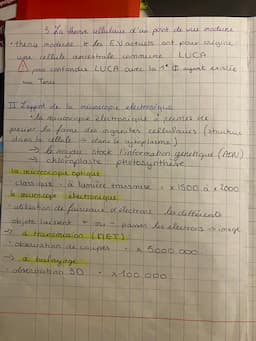 3. La théorie cellulaire d'un point de vue moderne
• théorie moderne : les EV actuels ont pour origine
une cellule ancestrale commune LUCA.
⚠ pas confondre LUCA avec la 1ère ayant existée
sur Terre
II L'apport de la microscopie électronique
• la microscopie électronique a permis de
préciser la forme des organites cellulaires (structure
dans la cellule → dans le cytoplasme)
→ le noyau stock l'information génétique (ADN)
→ chloroplaste photosynthèse
la microscopie optique
classique - à lumière transmise - x 1500 à x 2000
la microscopie électronique
• utilisation de faisceaux d'électrons les différents
objets laissent + ou - passer les électrons → image
→ à transmission (MET)
• observation de coupes x 5000 000
→ à balayage
• observation 3D x 100 000